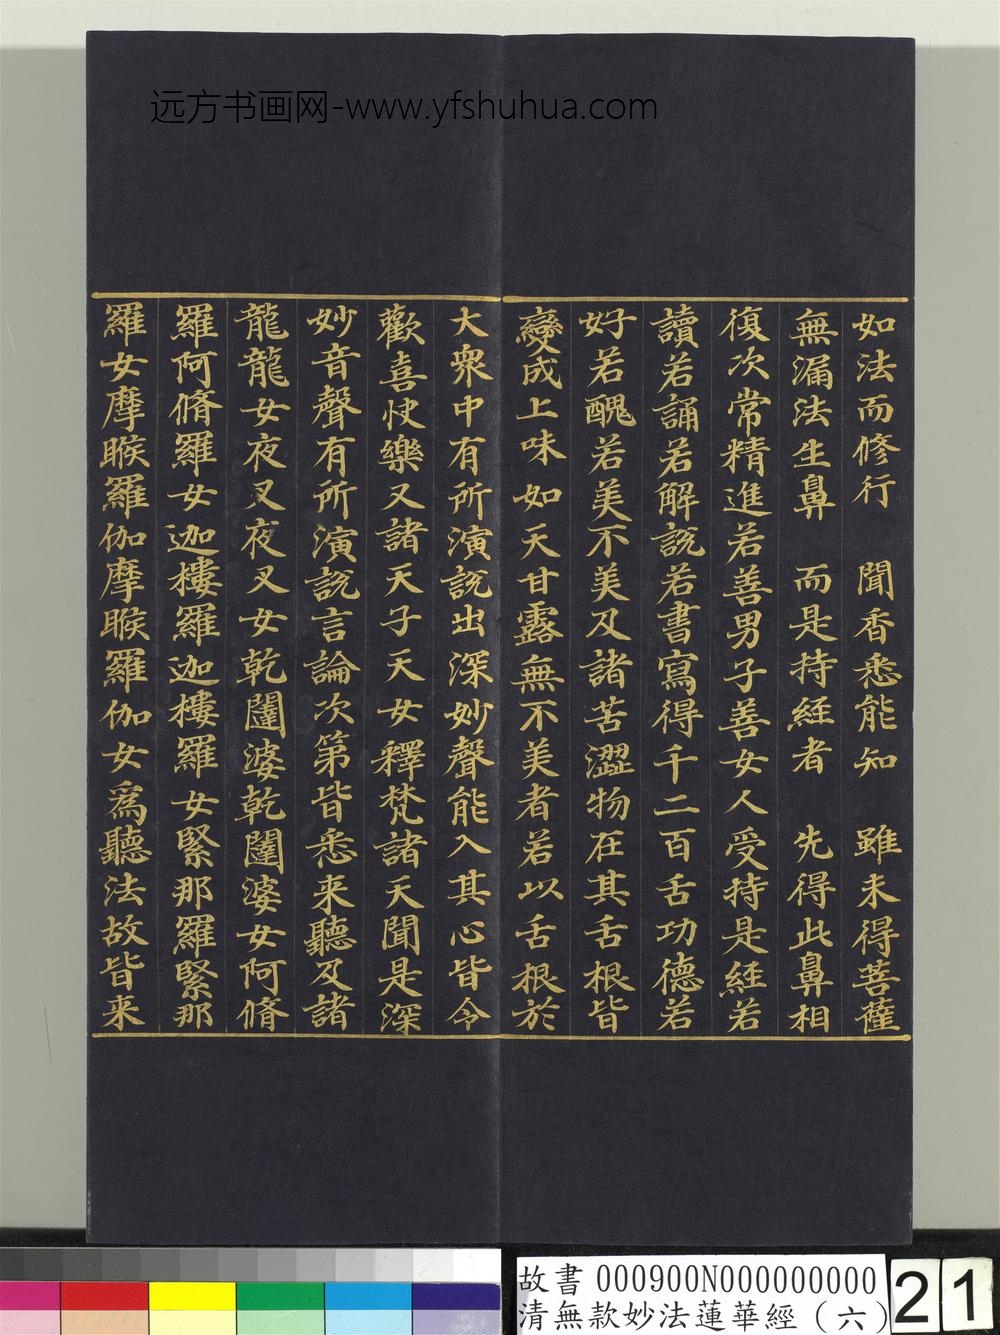 远方书画网-www.yfshuhua.com
如法而修行　聞香悉能知　雖未得菩薩
無漏法生鼻　而是持経者　先得此鼻相
復次常精進若善男子善女人受持是経若
讀若誦若解説若書寫得千二百舌功德若
好若醜若美不美及諸苦澀物在其舌根皆
變成上味如天甘露無不美者若以舌根於
大衆中有所演説出深妙聲能入其心皆令
歡喜快樂又諸天子天女釋梵諸天聞是深
妙音聲有所演説言論次第皆悉来聽及諸
龍龍女夜叉夜叉女乾闥婆乾闥婆女阿脩
羅阿脩羅女迦樓羅迦樓羅女緊那羅緊那
羅女摩睺羅伽摩睺羅伽女為聽法故皆来
故書 000900N000000000
清無款妙法蓮華經（六）
21